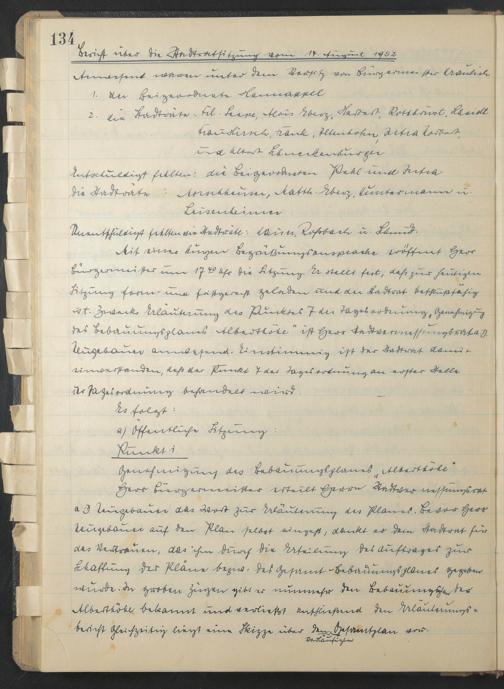 134
Bericht über die Stadtratsitzung vom 14. August 1952
Anwesend waren unter dem Vorsitz von Bürgermeister
1. der Beigeordnete Lennappel
2. die Stadträte: Fil. Alois Eberz,
Frau Kirsch, Altenhofen,
und Albert
Entschuldigt fehlten: die Beigeordneten und
die Stadträte: Matth. Eberz, Cuntermann u.
Leisenheimer
Unentschuldigt fehlten die Stadträte: Rohrbach u. Schmidt.
Mit einer kurzen Begrüßungsansprache eröffnet Herr
Bürgermeister um 17 Uhr die Sitzung. Er stellt fest, daß zur heutigen
Sitzung form- und fristgerecht geladen und der Stadtrat beschlußfähig
ist. Zwecks Erläuterung des Punktes 7 der Tagesordnung „Genehmigung
des Bebauungsplanes Albertstöte" ist Herr Stadtvermessungsrat a.D
Neugebauer anwesend. Einstimmig ist der Stadtrat damit
einverstanden, daß der Punkt 7 der Tagesordnung an erster Stelle
der Tagesordnung behandelt wird.
Es folgt:
a) Öffentliche Sitzung:
Punkt 1
Genehmigung des Bebauungsplanes „Albertstöte"
Herr Bürgermeister erteilt Herrn Stadtvermessungsrat
a.D Neugebauer das Wort zur Erläuterung des Planes. Bevor Herr
Neugebauer auf den Plan selbst eingeht, dankt er dem Stadtrat für
das Vertrauen, das ihm durch die Erteilung des Auftrages zur
Schaffung der Pläne bezw. des Gesamt-Bebauungsplanes gegeben
wurde. In groben Zügen gibt er nunmehr den Bebauungsplan der
Albertstöte bekannt und verliest anschließend den Erläuterungs-
bericht. Gleichzeitig liegt eine Skizze über den Gesamtplan vor.
vorläufigen